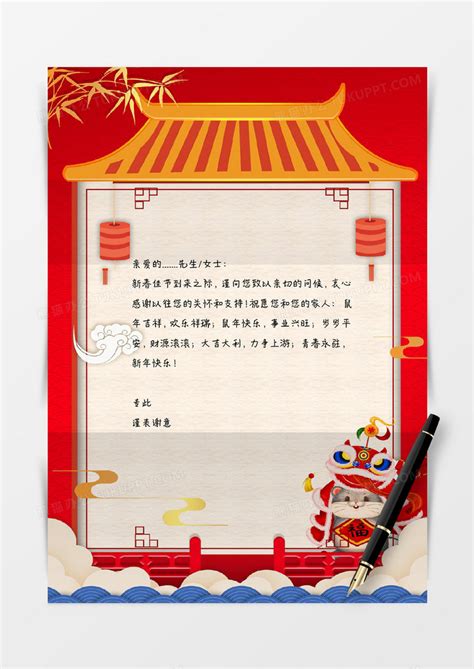 亲爱的......先生/女士：
新春佳节到来之际，谨向您致以亲切的问候，衷心
感谢以往您的关怀和支持！祝愿您和您的家人：鼠
年吉祥，欢乐祥瑞；鼠年快乐，事业兴旺；岁岁平
安，财源滚滚；大吉大利，力争上游；青春永驻，
新年快乐！
专此
谨表谢意
福